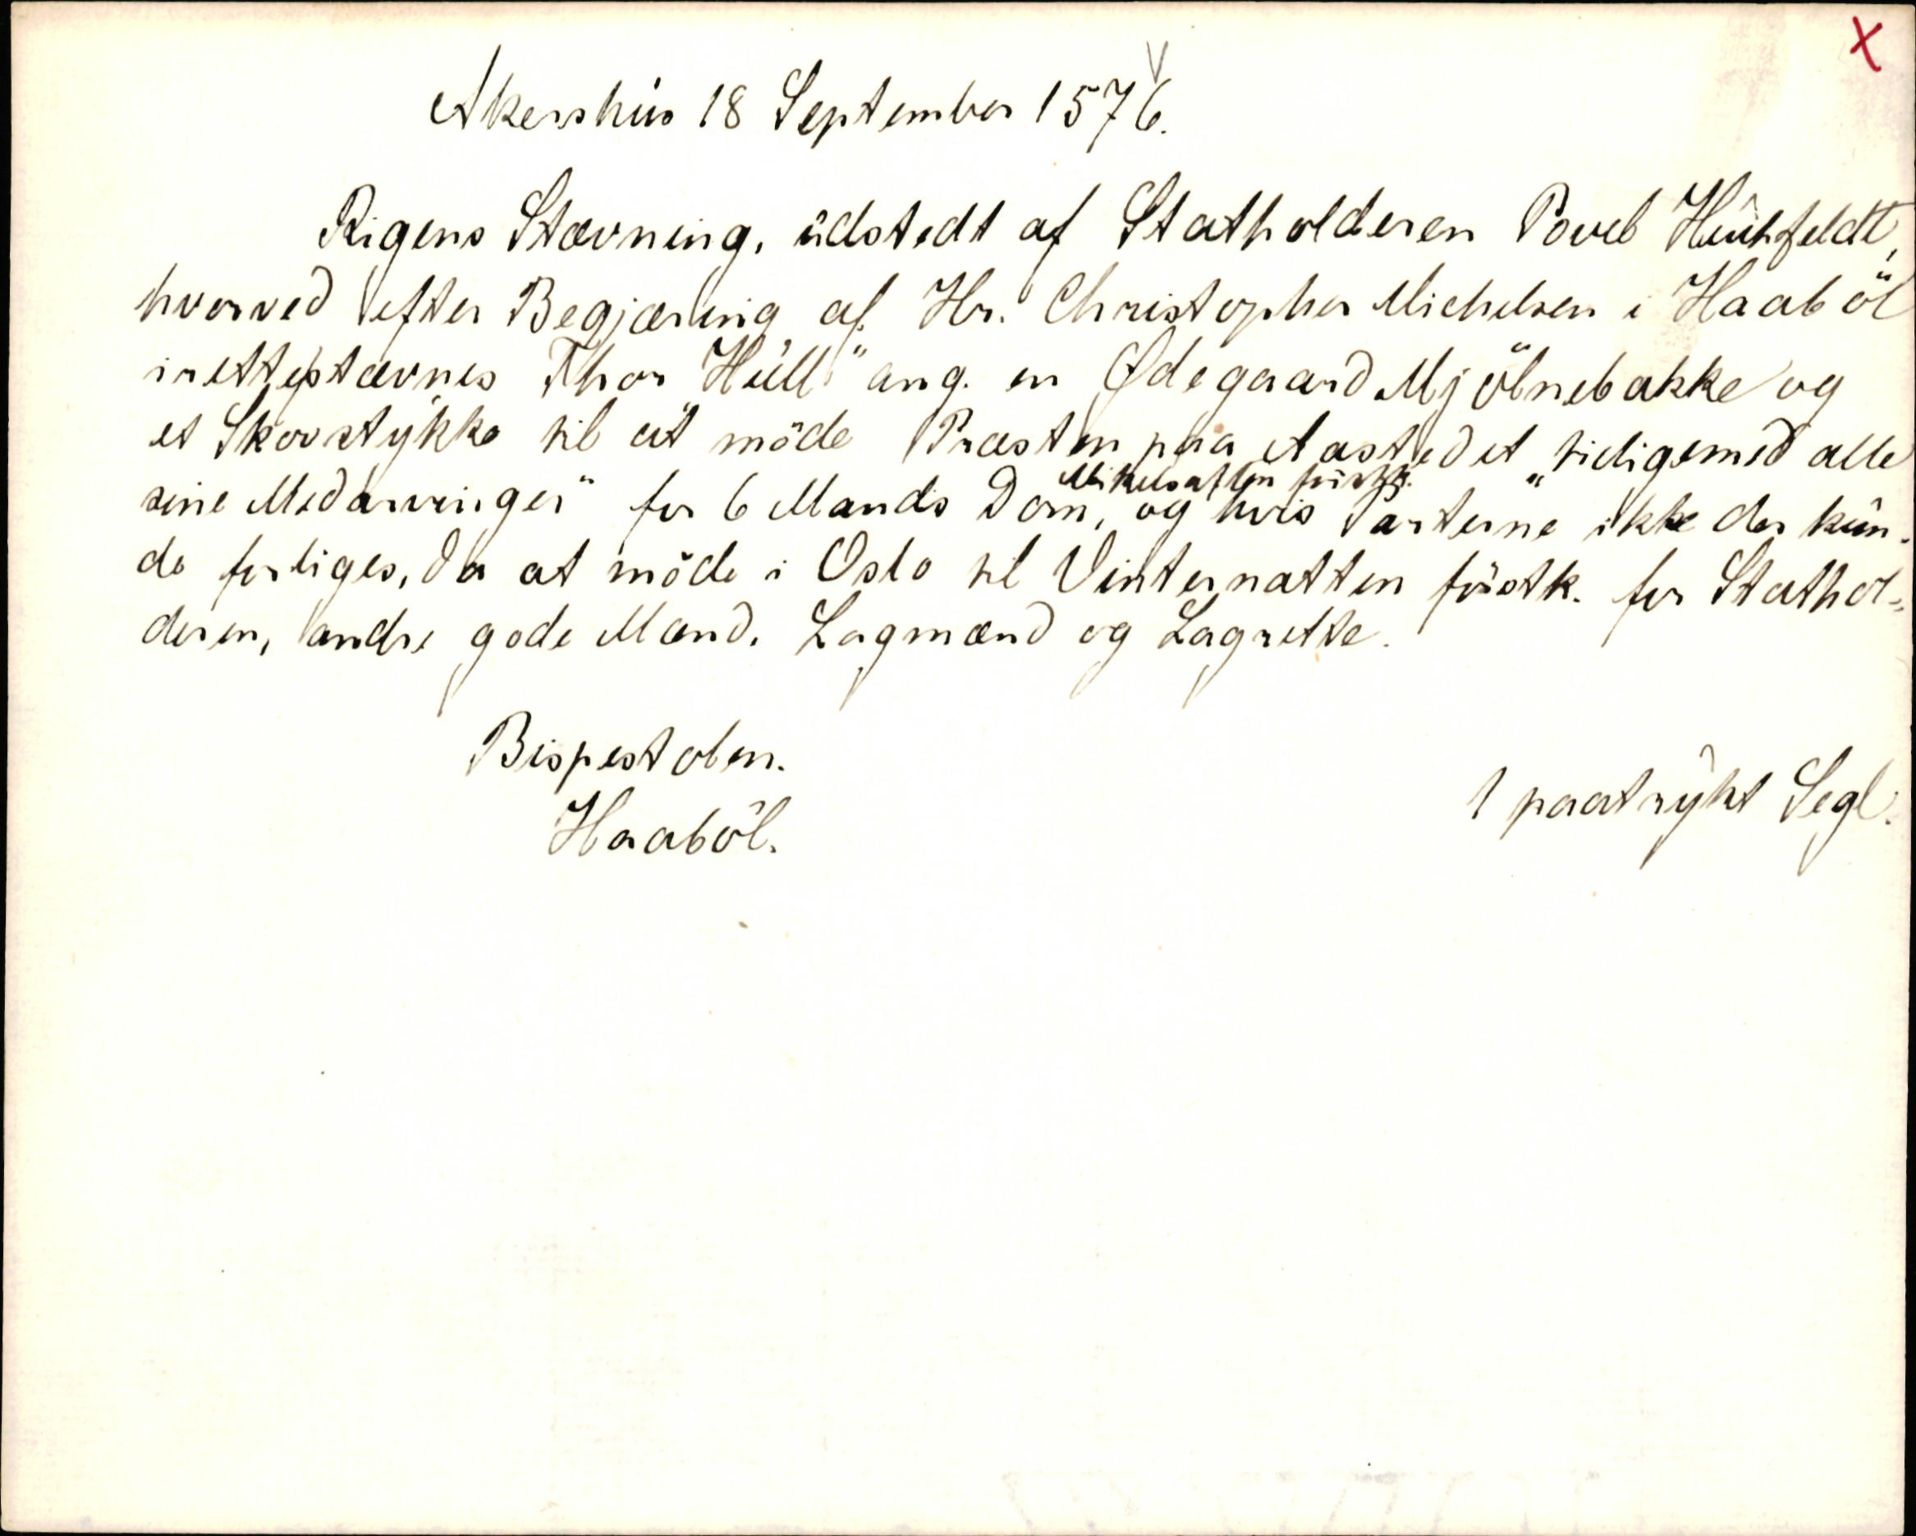 X
Akershus 18 September 1576.
Rigens Stævning, udstedt af Statholderen Povel Huitfeldt,
hvorved efter Begjæring af Hr. Christopher Michelsen i Haaböl
irettestævnes Thor Hüll" ang. en Ødegaard Mjölnebakke og
et Skovstykke til at möde Præsten paa Aastedet „tilligemed alle
Mikelsaften förstk.
sine Medarvinger" for 6 Mands Dom, og hvis Parterne ikke der kun-
de forliges, da at möde i Oslo til Vinternatten förstk. for Stathol-
deren, andre gode Mænd, Lagmænd og Lagrette.
Bispestolen.
Haaböl.
1 paatrykt Segl.